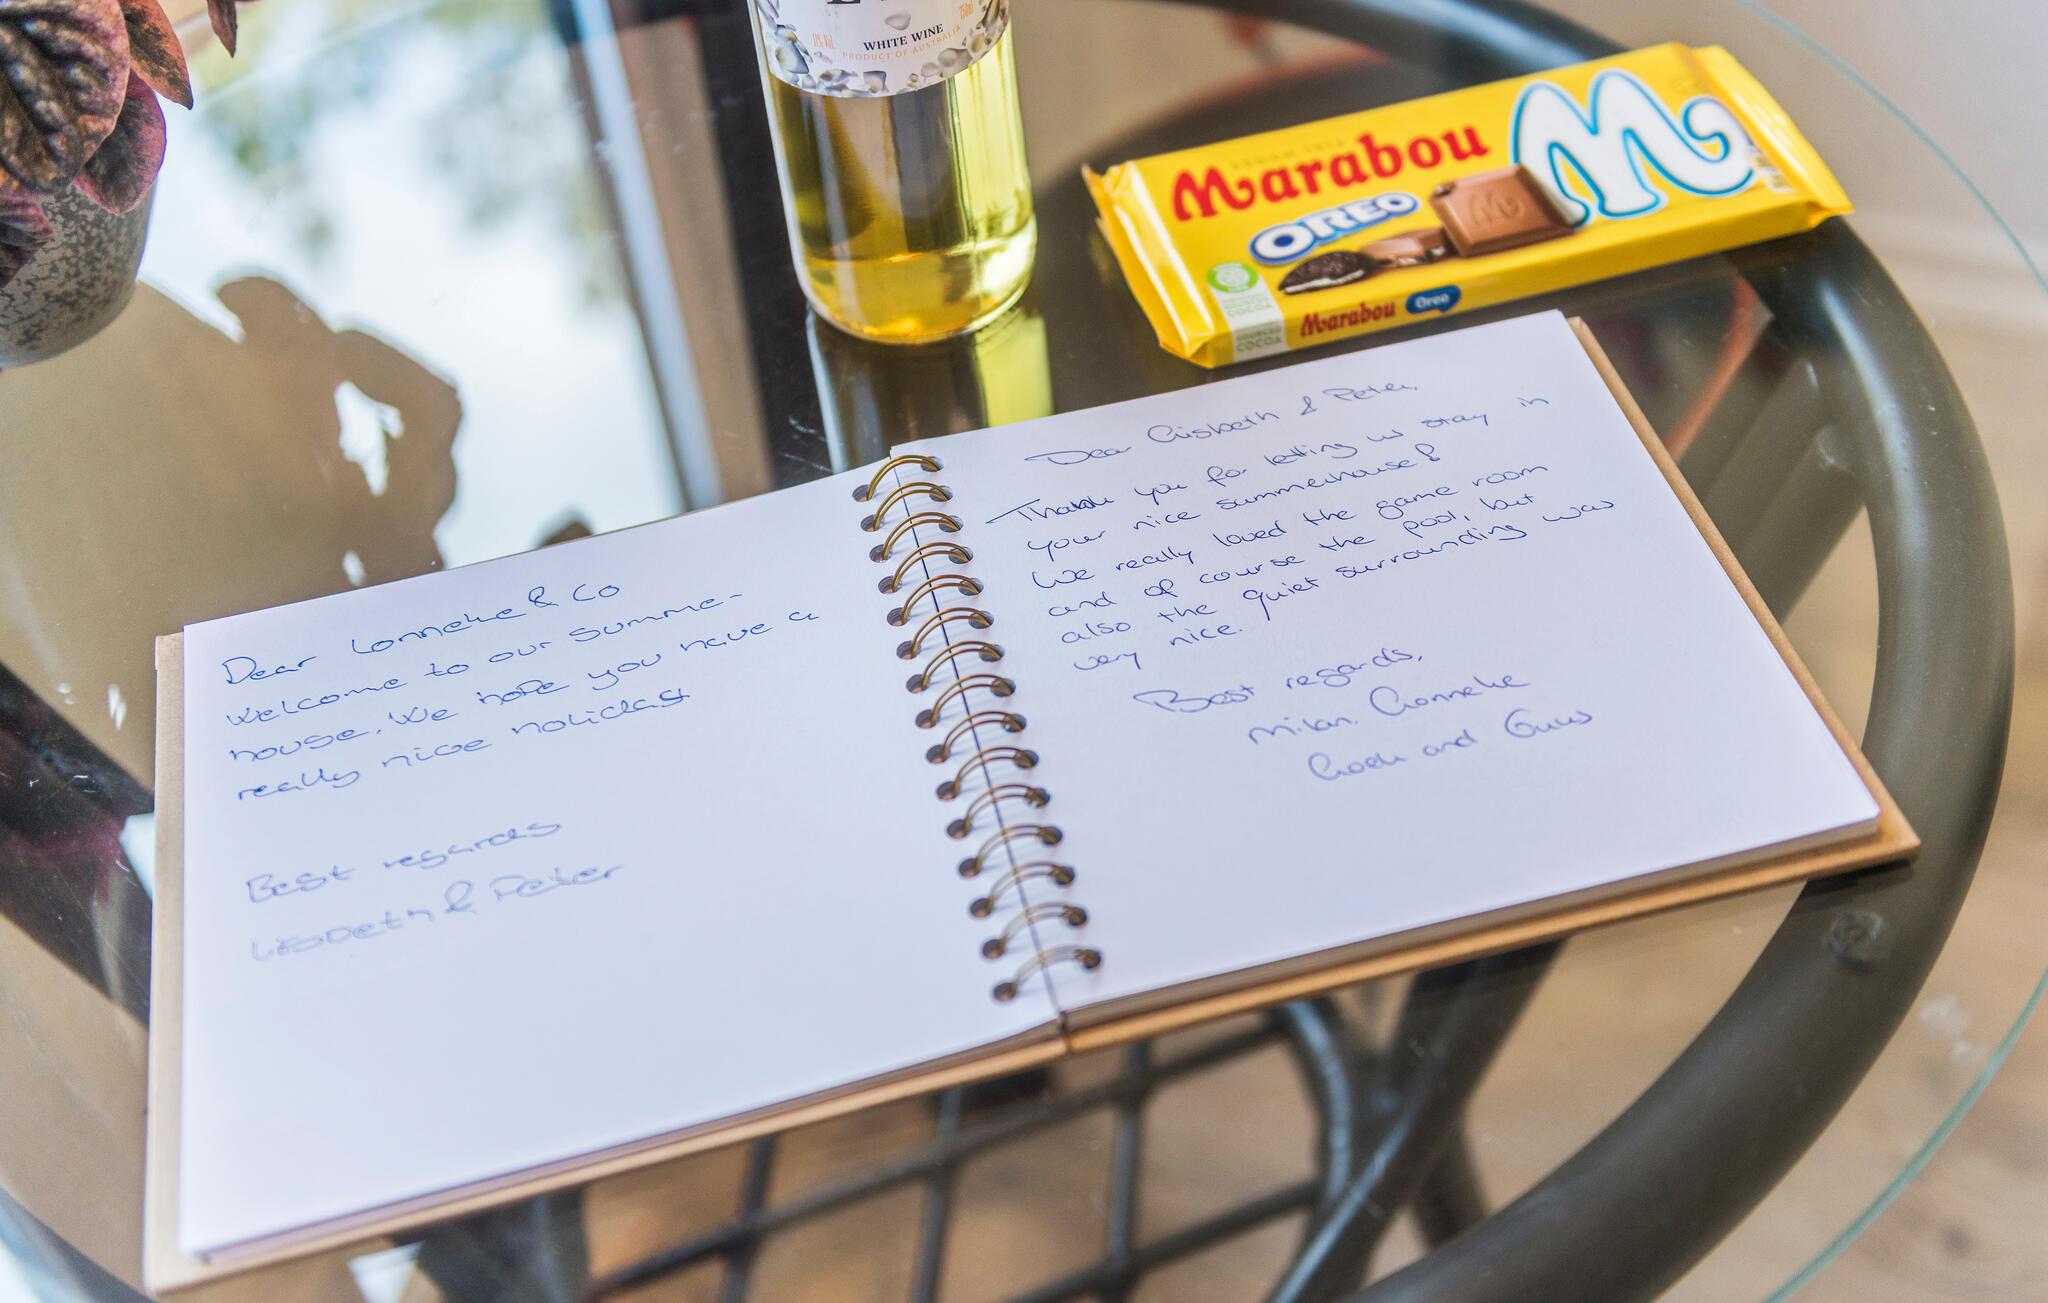 WHITE WINE
PRODUCT OF AUSTRALIA
11% Vol.
750ml
Marabou
OREO
M
SOURCED
COCOA
Marabou Oreo
Dear Lonneke & Co
Welcome to our summe-
house. We hope you have a
really nice holiday
Best regards
Lisbeth & Peter
Dear Lisbeth & Peter,
Thank you for letting us stay in
your nice summerhouse!
We really loved the game room
and of course the pool, but
also the quiet surrounding was
very nice.
Best regards,
Milan, Lonneke
and Guus